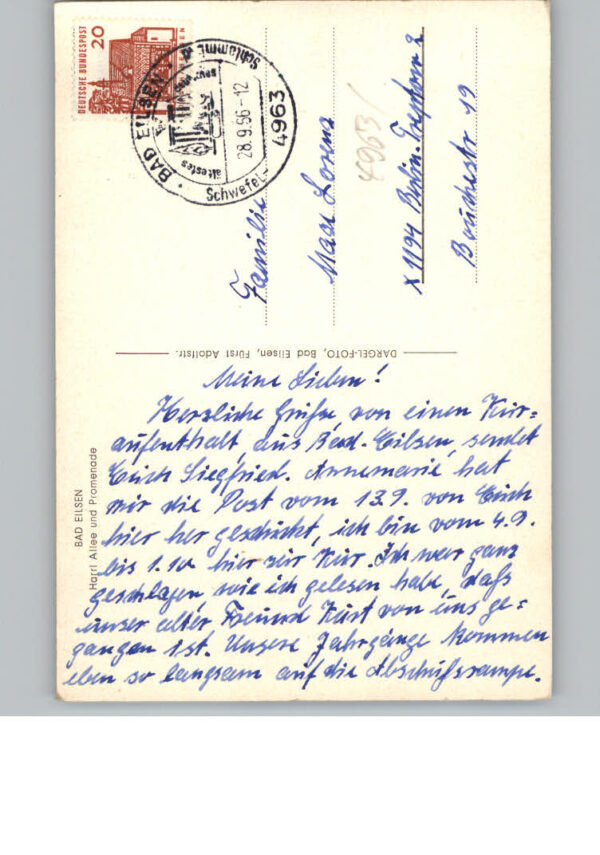 DEUTSCHE BUNDESPOST
20
BAD EILSEN
Schlamm
ältestes
Schwefel-
28.9.66-12
4963
4963/
Familie
Max Lorenz
X 1194 Berlin-Treptow 2
Bouchéstr 19
DARGEL-FOTO, Bad Eilsen, Fürst Adolfstr.
BAD EILSEN
Harrl Allee und Promenade
Meine Lieben!
Herzliche Grüße, von einen Kur=
aufenthalt, aus Bad-Eilsen, sendet
Euch Siegfried. Annemarie, hat
mir die Post vom 13.9. von Euch
hier her geschickt, ich bin vom 4.9.
bis 1.10. hier zur Kur. Ich war ganz
geschlagen wie ich gelesen habe, daß
unser alter Freund Kurt von uns ge=
gangen ist. Unsere Jahrgänge kommen
eben so langsam auf die Abschußrampe.